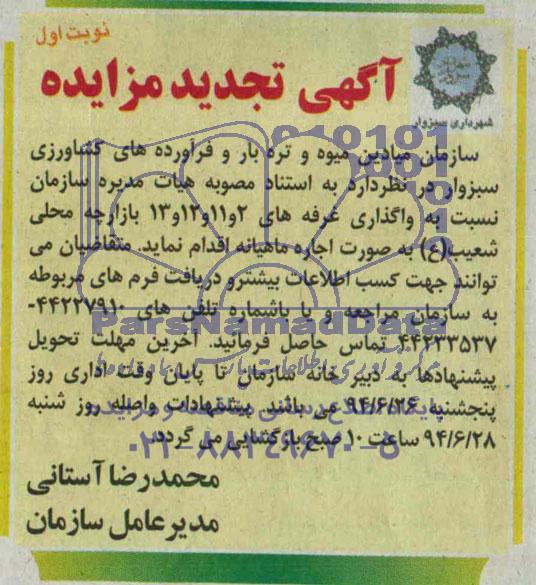 نوبت اول
آگهی تجدید مزایده
شهرداری سبزوار
سازمان میادین میوه و تره بار و فرآورده های کشاورزی
سبزوار در نظردارد به استناد مصوبه هیات مدیره سازمان
نسبت به واگذاری غرفه های ۲و۱۱و۱۲و۱۳ بازارچه محلی
شعیب(ع) به صورت اجاره ماهیانه اقدام نماید. متقاضیان می
توانند جهت کسب اطلاعات بیشترو دریافت فرم های مربوطه
به سازمان مراجعه و یا باشماره تلفن های ۴۴۲۲۷۹۱۰-
۴۴۲۳۳۵۳۷ تماس حاصل فرمائید. آخرین مهلت تحویل
پیشنهادها به دبیرخانه سازمان تا پایان وقت اداری روز
پنجشنبه ۹۴/۶/۲۶ می باشد. پیشنهادات واصله روز شنبه
۹۴/۶/۲۸ ساعت ۱۰ صبح بازگشایی می گردد.
محمدرضا آستانی
مدیرعامل سازمان
ParsNamadData
۰۲۱-۸۸۳۴۹۶۷۰-۵